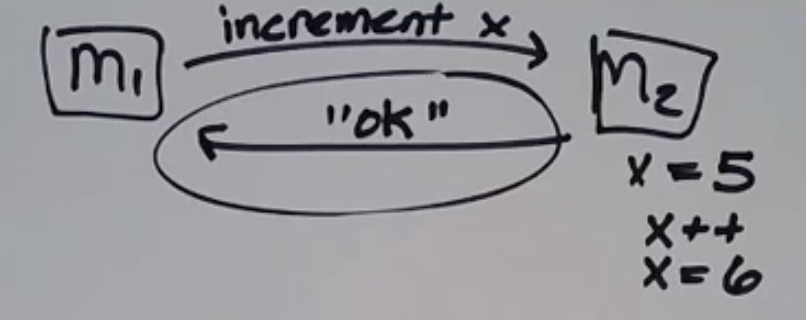 increment x
m₁
M₂
"ok"
x = 5
x++
x = 6